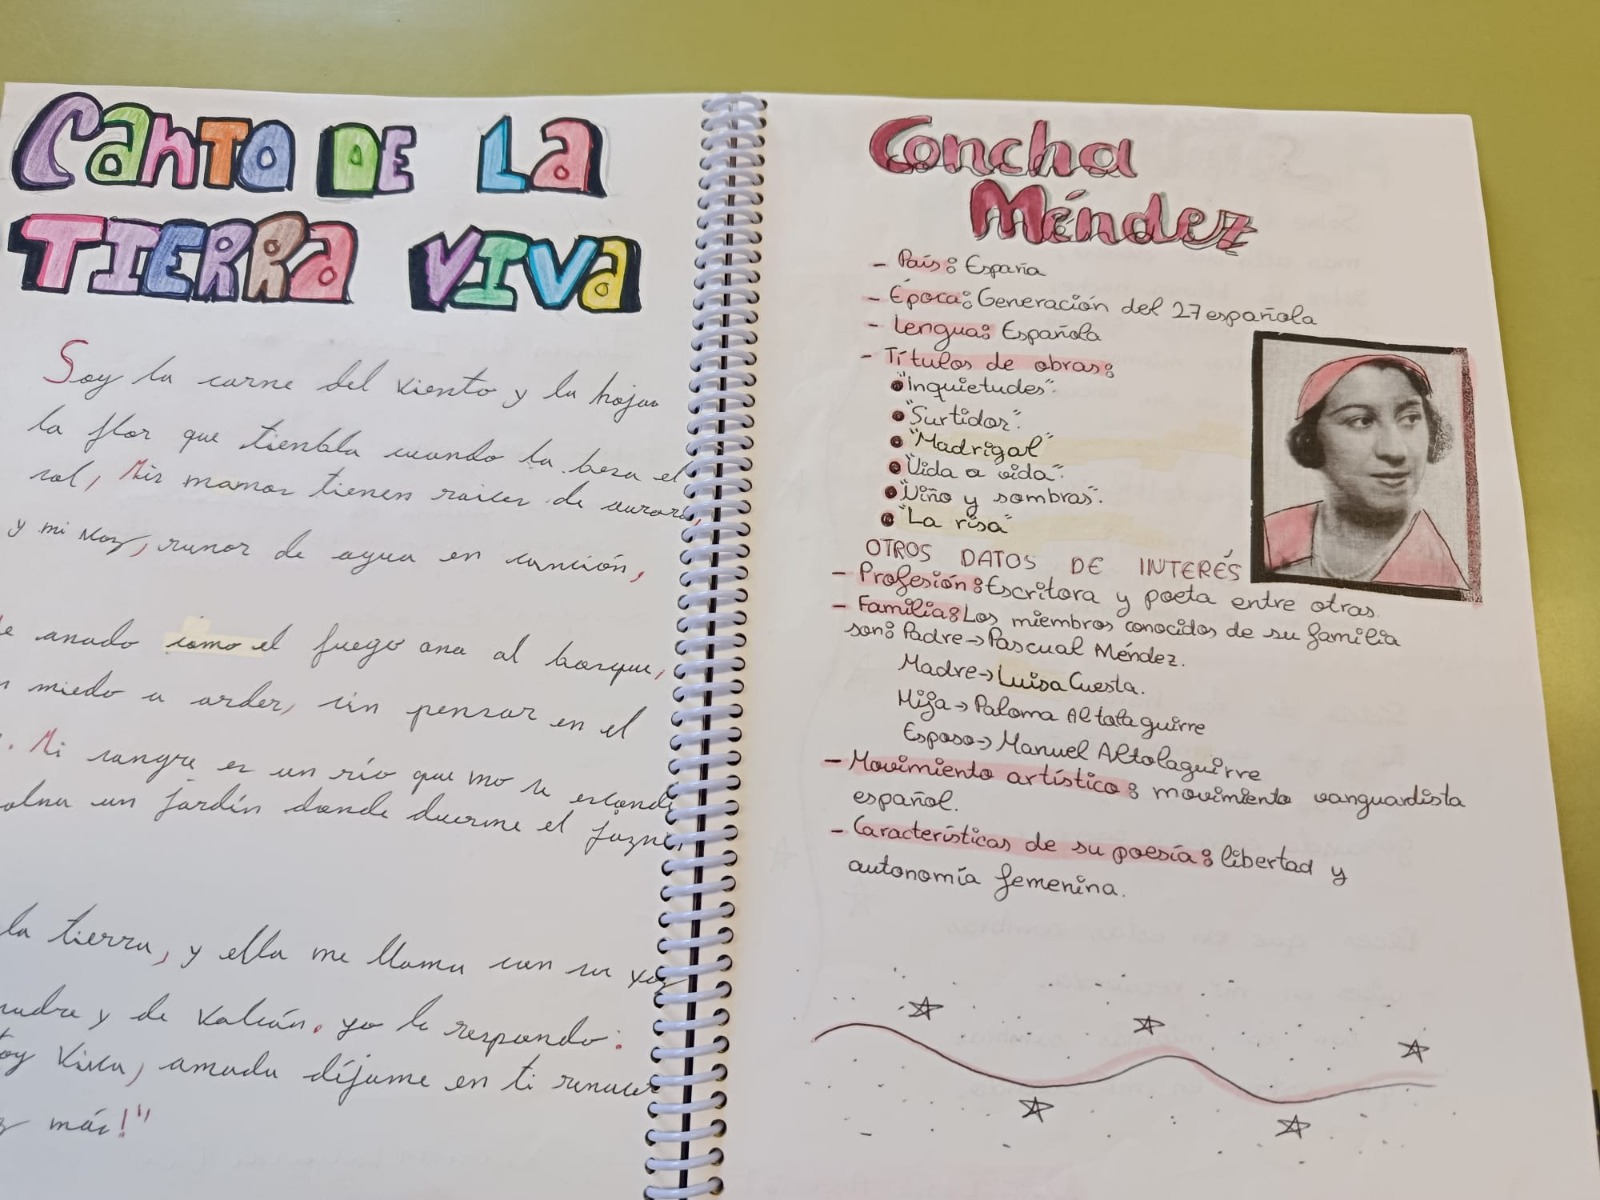 Canto DE La
TIERRA VIVa
Soy la carne del viento y la hoja
la flor que tiembla cuando la besa el
sol, Mis manos tienen raices de aurora,
y mi voz, rumor de agua en canción,
amado como el fuego ama al bosque,
miedo a arder, sin pensar en el
. Mi sangre es un río que no se esconde
un jardín donde duerme el jazmín
la tierra, y ella me llama con su voz
madre y de volcán. yo le respondo:
Viva, amada déjame en ti renacer
más!"
Concha
Méndez
- País: España
- Época: Generación del 27 española
- Lengua: Española
- Títulos de obras:
• "Inquietudes".
• "Surtidor".
• "Madrigal"
• "Vida a vida".
• "Niño y sombras".
• "La risa"
OTROS DATOS DE INTERÉS
- Profesión: Escritora y poeta entre otras.
- Familia: Los miembros conocidos de su familia
son: Padre→Pascual Méndez.
Madre→Luisa Cuesta.
Hija→Paloma Altolaguirre
Esposo→Manuel Altolaguirre
- Movimiento artístico: movimiento vanguardista
español.
- Características de su poesía: libertad y
autonomía femenina.